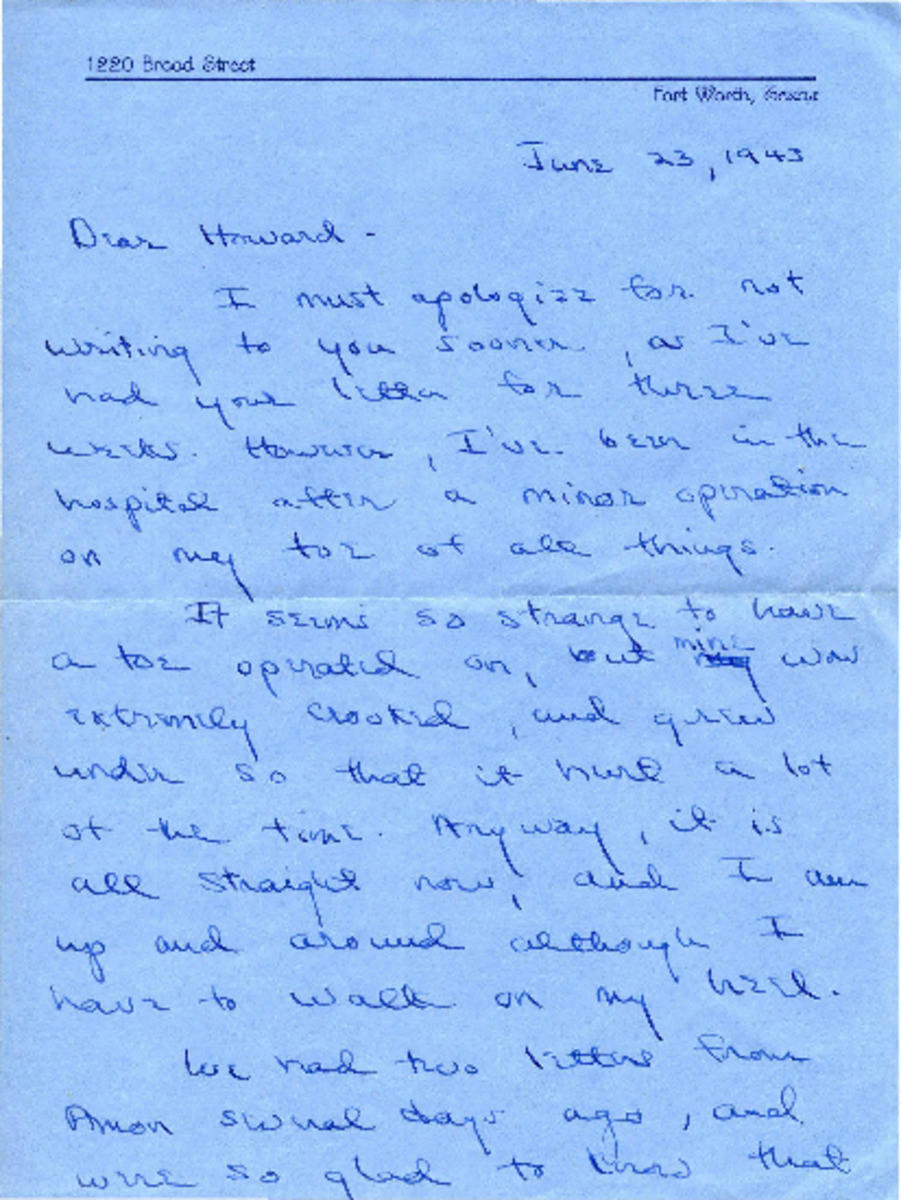 1220 Broad Street
Fort Worth, Texas
June 23, 1943
Dear Howard -
I must apologize for not
writing to you sooner, as I've
had your letter for three
weeks. However, I've been in the
hospital after a minor operation
on my toe of all things.
It seems so strange to have
mine
a toe operated on, but my was
extremely crooked, and grew
under so that it hurt a lot
of the time. Anyway, it is
all straight now, and I am
up and around although I
have to walk on my heel.
We had two letters from
Amon several days ago, and
were so glad to know that